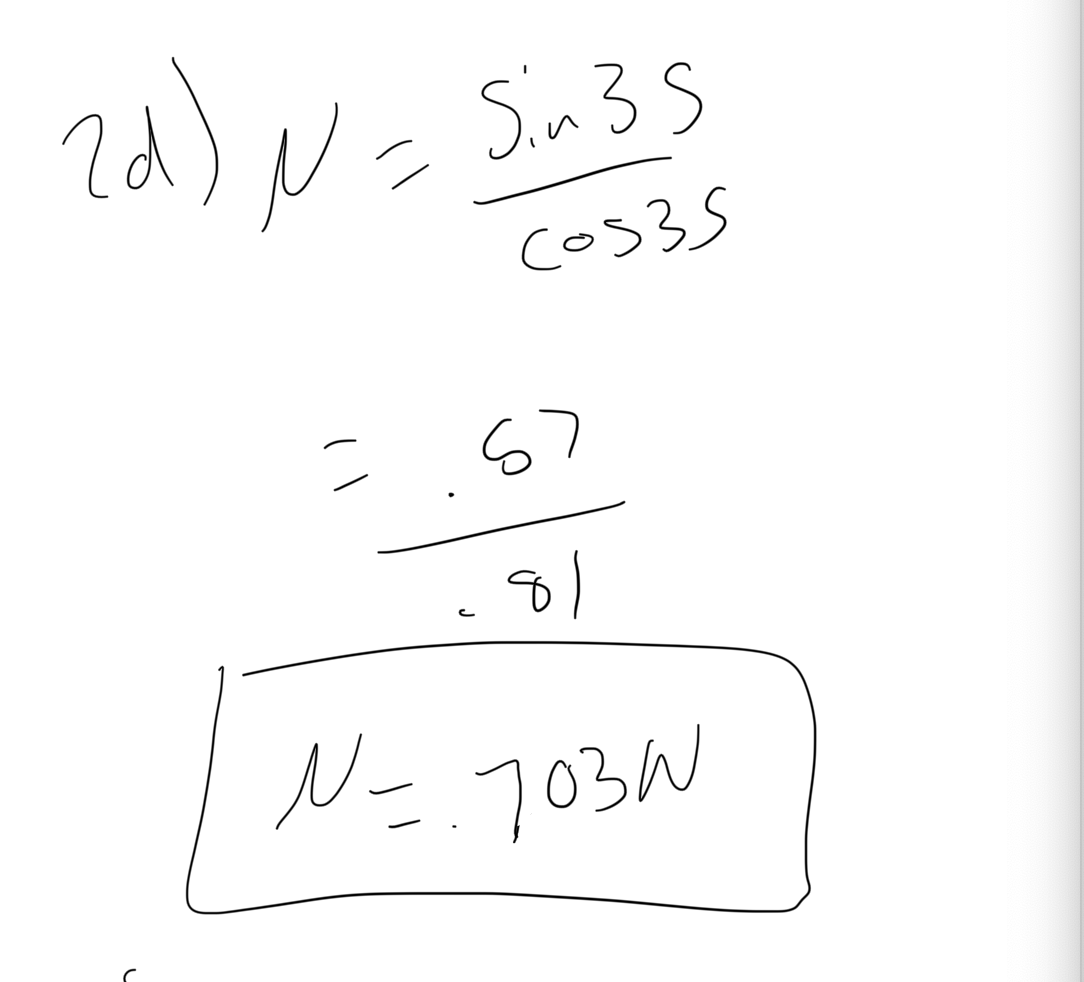 2d) μ = sin35
cos35
= .57
.81
μ = .703N